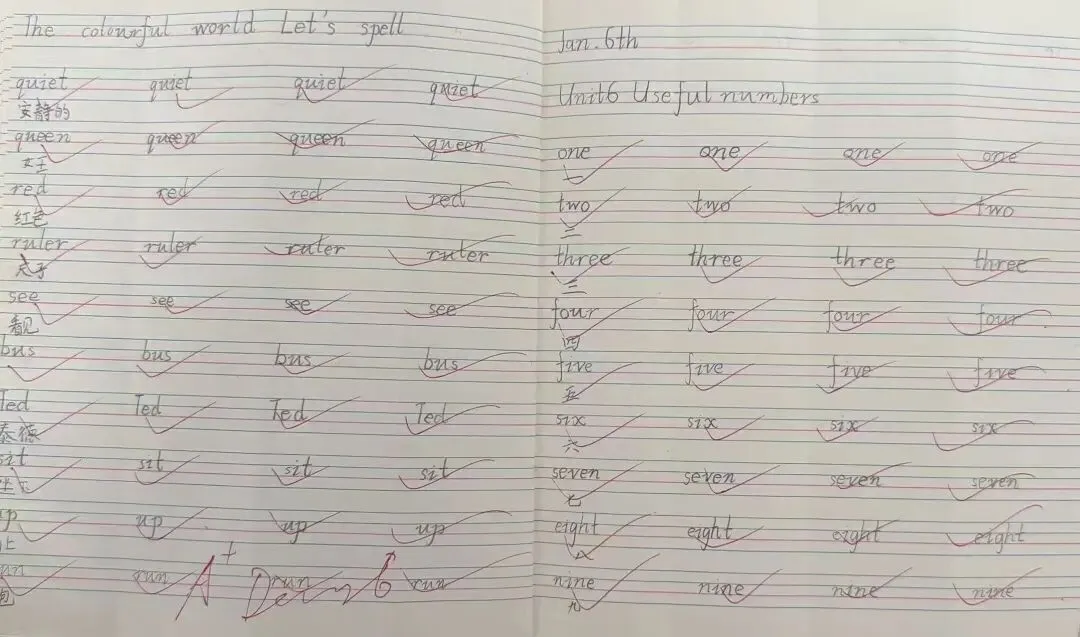 The colourful world Let's spell
quiet quiet quiet quiet
安静的
queen queen queen queen
女王
red red red red
红色
ruler ruler ruler ruler
尺子
see see see see
看见
bus bus bus bus
Ted Ted Ted Ted
泰德
sit sit sit sit
坐下
up up up up
上
run run run run
跑
A+
Jan. 6th
Unit6 Useful numbers
one one one one
一
two two two two
二
three three three three
三
four four four four
四
five five five five
五
six six six six
六
seven seven seven seven
七
eight eight eight eight
八
nine nine nine nine
九